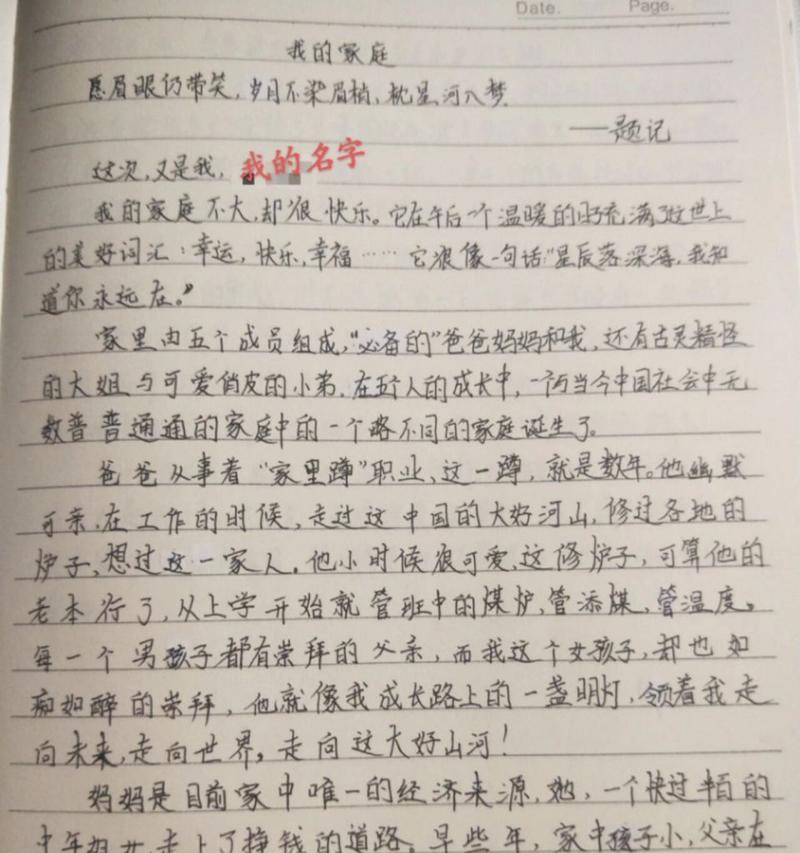 Date. Page.
我的家庭
愿眉眼仍带笑，岁月不染眉梢，枕星河入梦
——题记
这次，又是我，我的名字
我的家庭不大，却很快乐。它在午后一个温暖的日子充满了这世上
的美好词汇：幸运，快乐，幸福……它很像一句话“星辰落深海，我知
道你永远在。”
家里由五个成员组成，“必备的”爸爸妈妈和我，还有古灵精怪
的大姐与可爱俏皮的小弟．在五个人的成长中，一个与当今中国社会中无
数普普通通的家庭中的一个略不同的家庭诞生了。
爸爸从事着“家里蹲”职业、这一蹲，就是数年。他幽默
可亲．在工作的时候，走过这中国的大好河山，修过各地的
炉子、想过这一家人。他小时候很可爱、这修炉子，可算他的
老本行了，从上学开始就管班中的煤炉，管添煤，管温度。
每一个男孩子都有崇拜的父亲，而我这个女孩子，却也如
痴如醉的崇拜，他就像我成长路上的一盏明灯，领着我走
向未来，走向世界，走向这大好山河！
妈妈是目前家中唯一的经济来源，她，一个快过半百的
中年妇女，走上了挣钱的道路。早些年，家中孩子小，父亲在